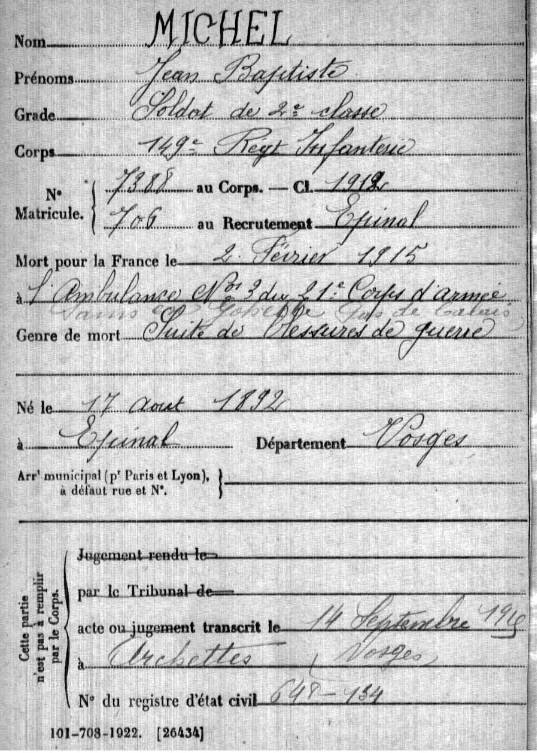 Nom MICHEL
Prénoms Jean Baptiste
Grade Soldat de 2e classe
Corps 149e Regt Infanterie
N° Matricule. { 7388 au Corps. — Cl. 1912
706 au Recrutement Epinal
Mort pour la France le 2 Février 1915
à l'Ambulance No 3 du 21e Corps d'armée
Pas de Calais
Genre de mort Suite de blessures de guerre
Né le 17 Aout 1892
à Epinal Département Vosges
Arrt municipal (pr Paris et Lyon), à défaut rue et N°. }
Cette partie n'est pas à remplir par le Corps. {
Jugement rendu le
par le Tribunal de
acte ou jugement transcrit le 14 Septembre 1915
à Archettes (Vosges)
N° du registre d'état civil 648 - 134
101-708-1922. [26434]